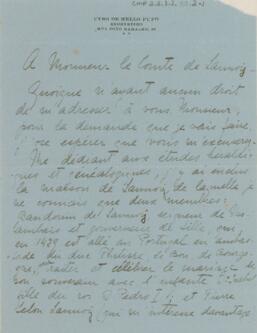 CMP 2.2.2.2.
CYRO DE MELLO PUPO
ENGENHEIRO
A Monsieur le Comte de Lannoy
Quoique n'ayant aucun droit
de m'adresser à vous, Monsieur,
pour la demande que je vais faire,
j'ose espérer que vous m'excuserez.
Me dédiant aux études héraldi-
ques et généalogiques, j'y ai
la maison de Lannoy de laquelle je
ne connais que deux membres:
Baudouin de Lannoy, seigneur de
et gouverneur de Lille, qui,
en 1429 est allé au Portugal en ambas-
sade du duc Philippe, le Bon, de Bourgo-
gne, traiter et célébrer le mariage de
son souverain avec l'infante
fille du roi
Lannoy (qui m'intéresse davantage